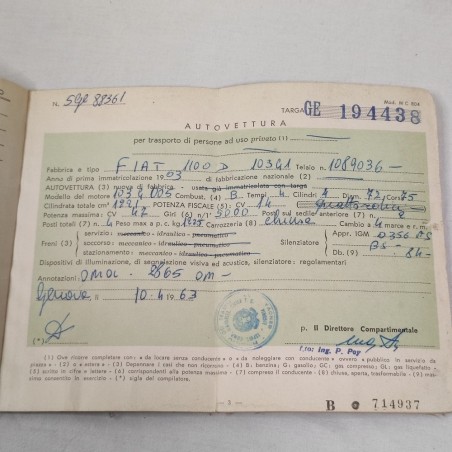 N. 5Ge 88361
Mod. M C 804
TARGA GE 194438
AUTOVETTURA
per trasporto di persone ad uso privato (1)
Fabbrica e tipo FIAT 1100 D 103G1 Telaio N. 1089036
Anno di prima immatricolazione 1963 di fabbricazione nazionale (2)
AUTOVETTURA (3) nuova di fabbrica - usata già immatricolata con targa
Modello del motore 103 G 005 Combust. (4) B Tempi 4 Cilindri 4 Diam. 72 Corsa 75
Cilindrata totale cm³ 1221 POTENZA FISCALE (5) CV 14
Potenza massima: CV 47 Giri (6) n/1' 5000 Posti sul sedile anteriore (7) n. 2
Posti totali (7) n. 4 Peso max a p. c. kg. Carrozzeria (8) chiusa Cambio a 4 marce e rm.
Freni (3)
servizio - meccanico - idraulico - pneumatico
soccorso - meccanico - idraulico - pneumatico
stazionamento - meccanico - idraulico - pneumatico
Silenziatore
Appr. IGM 0356 BS
BS
Db. (9) 84
Dispositivi di illuminazione, di segnalazione visiva ed acustica, silenziatore: regolamentari
Annotazioni OMOL. 2865 OM
Genova li 10.4.1963
(*)
p. Il Direttore Compartimentale
f.to: Ing. P. Poy
(1) Ove ricorre completare con: « da locare senza conducente » o « da noleggiare con conducente » ovvero « pubblico in servizio da
piazza ». (2) o « estera ». (3) Depennare i casi che non ricorrono. (4) B: benzina; G: gasolio; GC: gas compresso; GL: gas liquefatto.
(5) scrivere in cifre e « lettere ». (6) corrispondenti alla potenza massima. (7) compreso il conducente. (8) chiusa, aperta, trasformabile. (9) mas-
simo consentito in esercizio. (*) sigla del compilatore.
- 3 -
B 714937